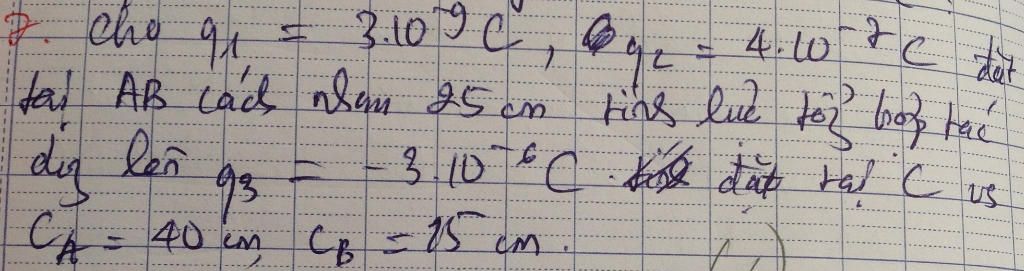 7. Cho q1 = 3.10^-9 C, q2 = 4.10^-7 C đặt
tại AB cách nhau 25 cm tính lực tổng hợp tác
dụng lên q3 = -3.10^-6 C đặt tại C vs
CA = 40 cm, CB = 15 cm.